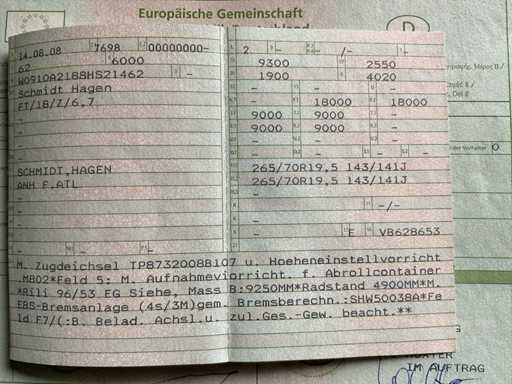 Europäische Gemeinschaft
D
14.08.08 7698 00000000-
62 6000
W0910A218BHS21462 -
Schmidt Hagen
FT/18/Z/6,7
-
-
SCHMIDT,HAGEN
ANH.F.ATL
-
-
-
2 - /- -
9300 2550
1900 4020
- - -
- 18000 18000
9000 9000 -
9000 9000 -
- - - -
265/70R19,5 143/141J
265/70R19,5 143/141J
-
- -/-
-
- E VB628653
M. Zugdeichsel TP8732008B107 u. Hoeheneinstellvorricht
.MB02*Feld 5: M. Aufnahmevorricht. f. Abrollcontainer
*Rili 96/53 EG Siehe, Mass B:9250MM*Radstand 4900MM*M.
EBS-Bremsanlage (4s/3M)gem. Bremsberechn.:SHW5003BA*Fe
ld F7/(:B. Belad. Achsl.u. zul.Ges.-Gew. beacht.**
IM AUFTRAG